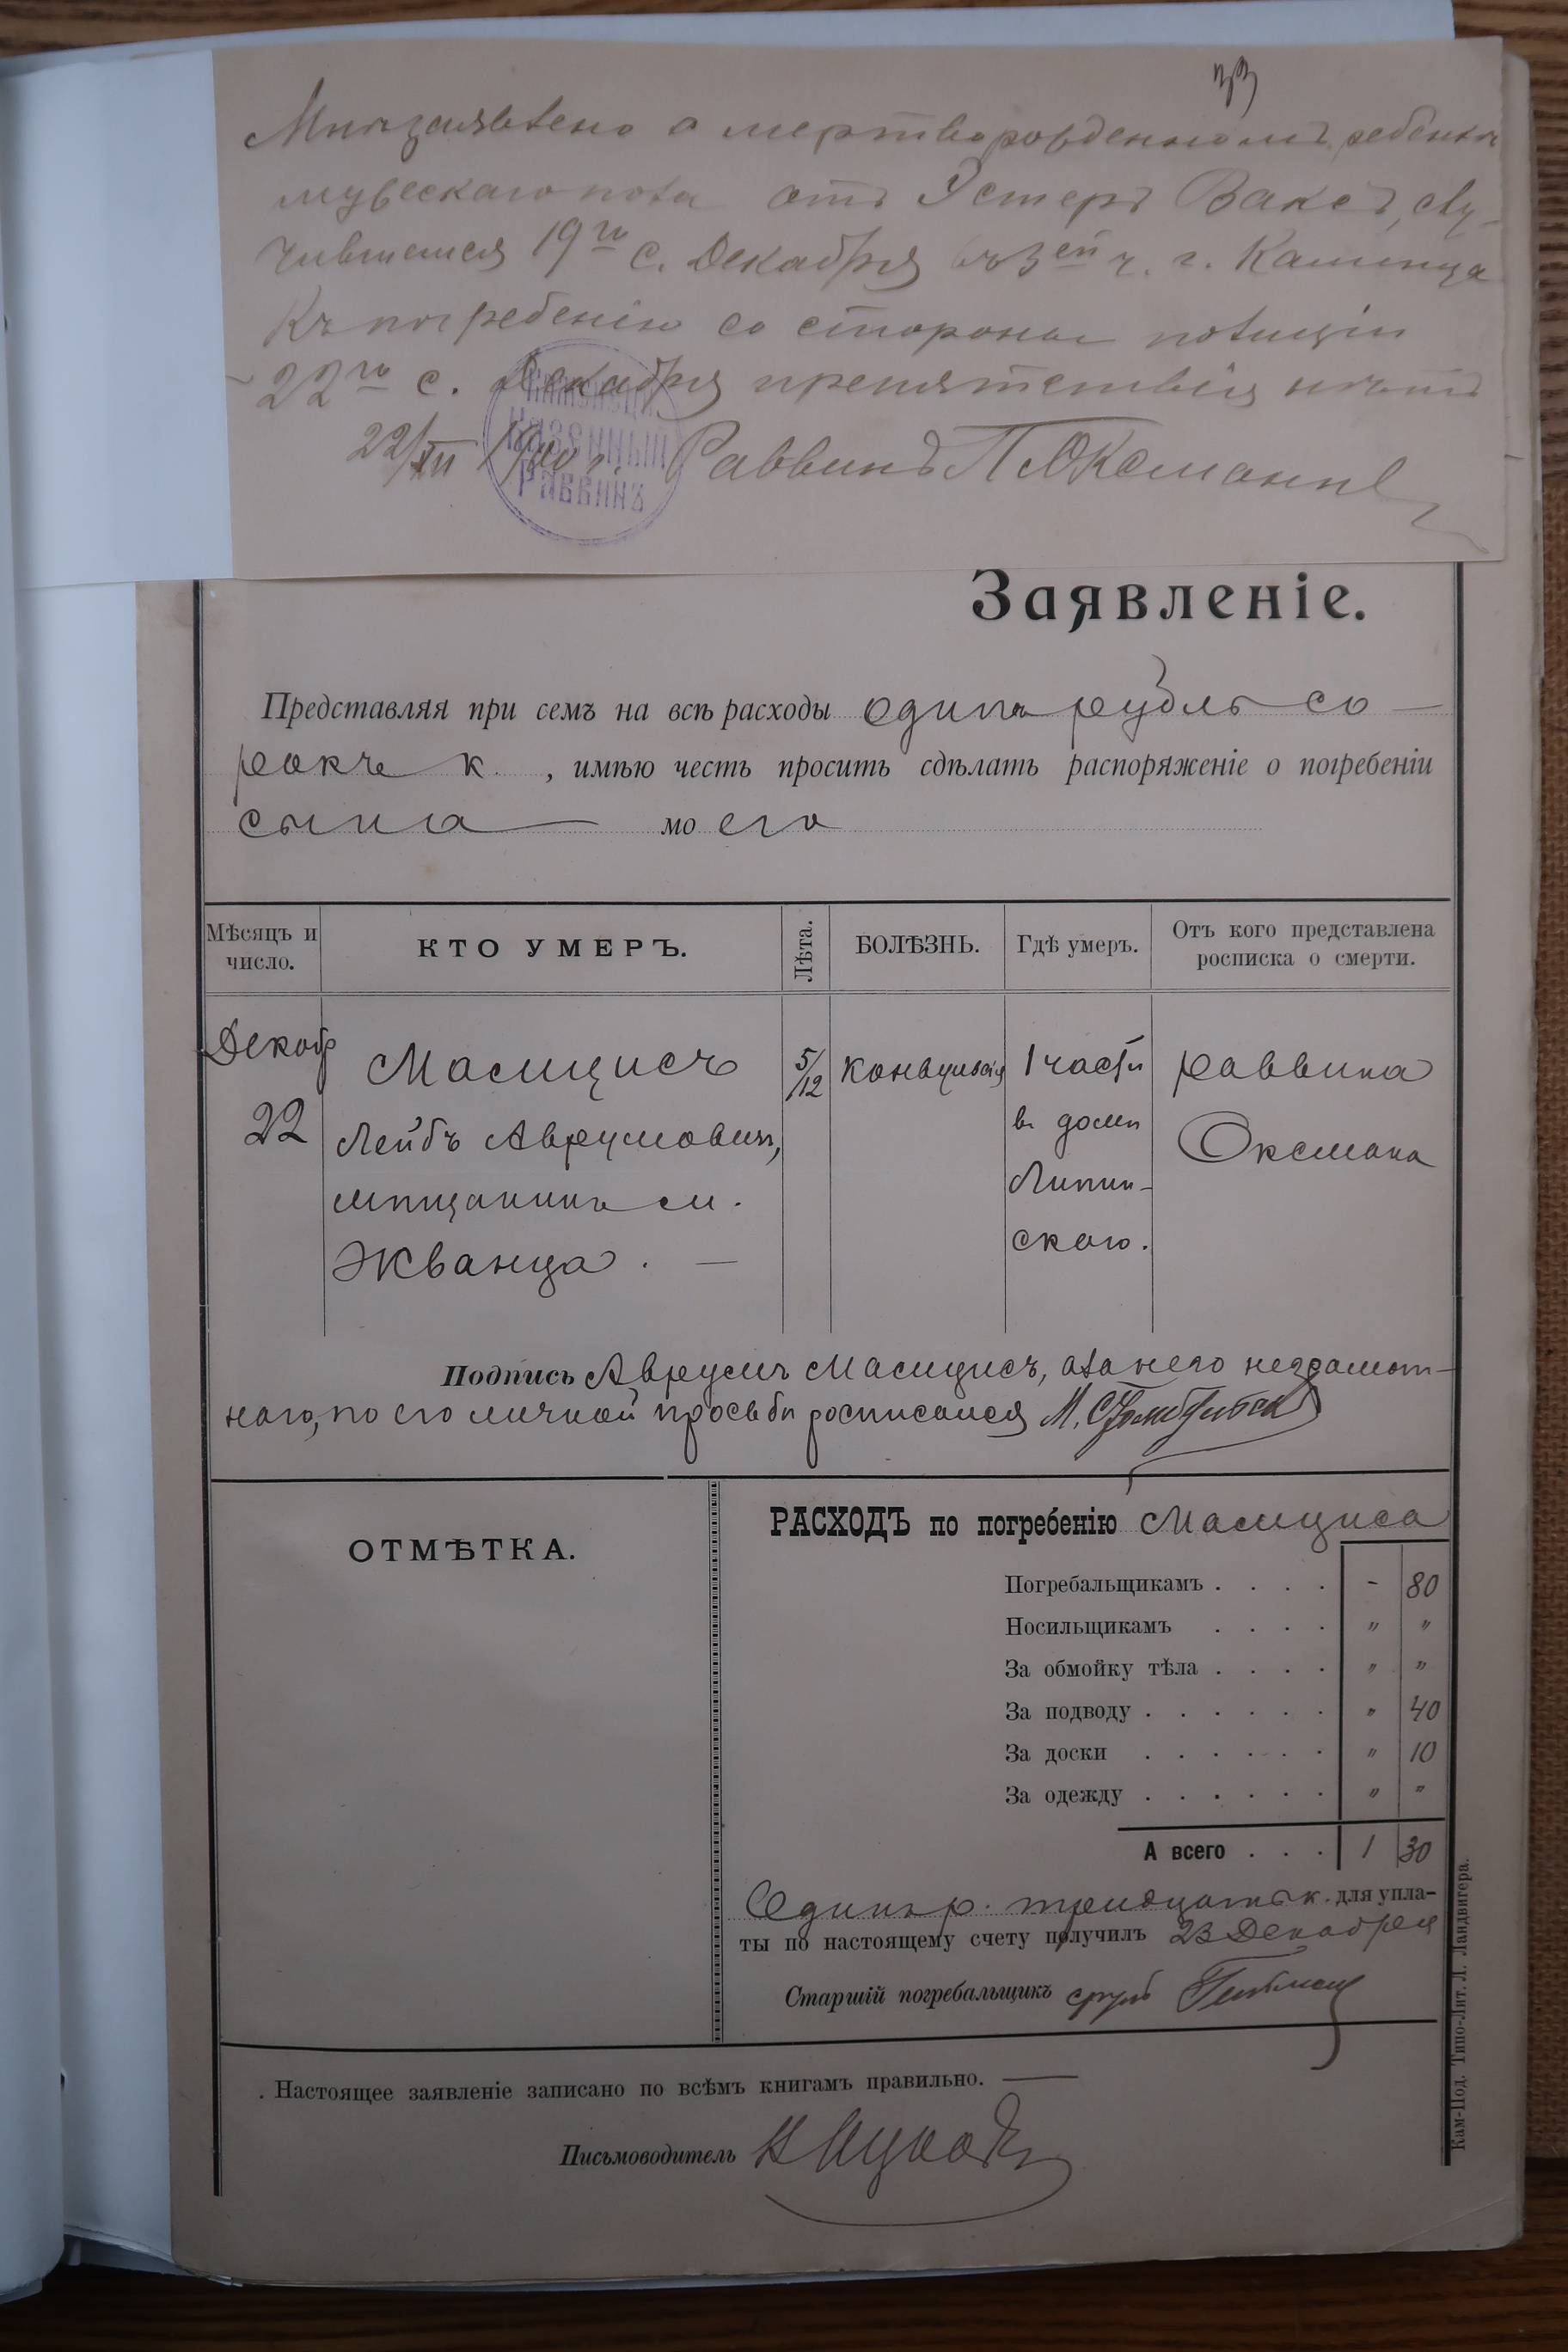 33
Мнѣ заявлено о мертворожденномъ ребенкѣ
мужескаго пола отъ Эстеръ Ваксъ, слу-
чившемся 19го с. Декабря въ 3ей ч. г. Каменца
Къ погребенію со стороны полиціи
22го с. Декабря препятствія нѣтъ
22/XII 1900 г. Раввинъ П. Оксманъ
Казенный
Раввинъ
Заявленіе.
Представляя при семъ на всѣ расходы одинъ рубль со-
рокъ к., имѣю честь просить сдѣлать распоряженіе о погребеніи
сына моего
Мѣсяцъ и число. КТО УМЕРЪ. Лѣта. БОЛѢЗНЬ. Гдѣ умеръ. Отъ кого представлена росписка о смерти.
Декабр 22
Масицисъ
Лейбъ Аврумовичъ,
мѣщанинъ м.
Жванца. —
5/12
конвульсія
1 части
въ домѣ
Липин-
скаго.
раввина
Оксмана
Подпись Аврумъ Масицисъ, а за него неграмот-
наго, по его личной просьбѣ росписался М.
ОТМѢТКА.
РАСХОДЪ по погребенію Масициса
Погребальщикамъ . . . . - 80
Носильщикамъ . . . . " "
За обмойку тѣла . . . . " "
За подводу . . . . . . " 40
За доски . . . . . . " 10
За одежду . . . . . . " "
А всего . . . 1 30
Одинъ р. тридцать к. для упла-
ты по настоящему счету получилъ 23 Декабря
Старшій погребальщикъ
Настоящее заявленіе записано по всѣмъ книгамъ правильно. —
Письмоводитель
Кам-Под. Типо-Лит. Л. Ландвигера.